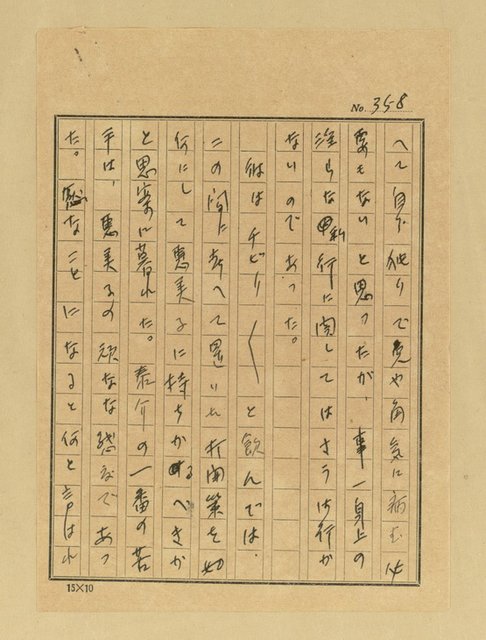 No. 358
へて自分独りで兎や角気に病む必
要もないと思つたが、事一身上の
淫らな私行に関してはさうは行か
ないのであつた。
彼はチビリ〱と飲んでは、
この間に考へて置いた打開策を如
何にして恵美子に持ちかけるべきか
と思案に暮れた。泰介の一番の苦
手は、恵美子の頑なな態度であつ
た。なことになると何と言はれ
15×10